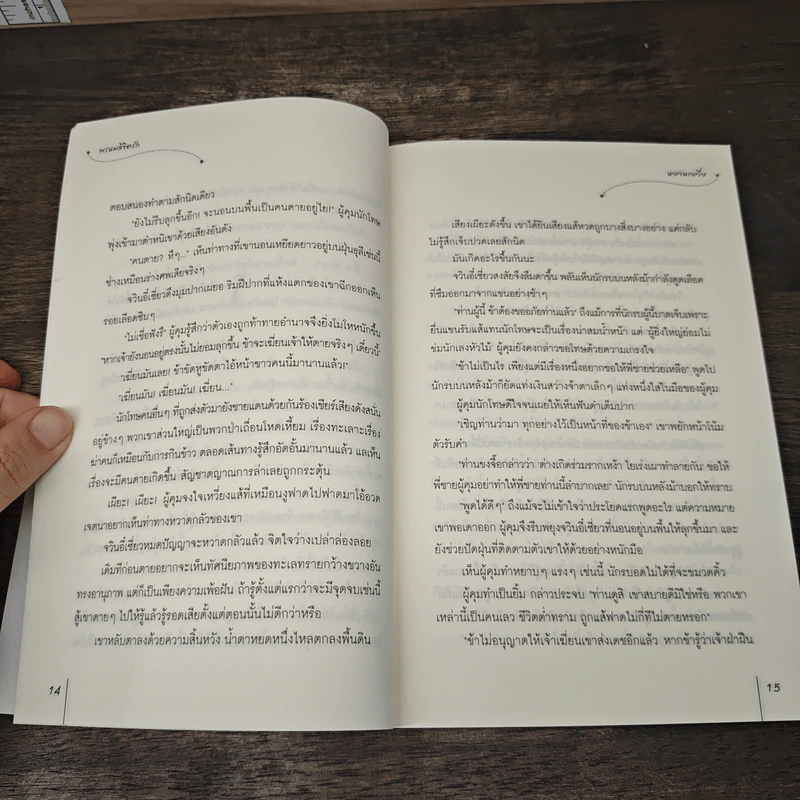 พรหมลิขิตรัก
ตอบสนองทำตามสักนิดเดียว
"ยังไม่รีบลุกขึ้นอีก! จะนอนบนพื้นเป็นคนตายอยู่ไย!" ผู้คุมนักโทษ
พุ่งเข้ามาตำหนิเขาด้วยเสียงอันดัง
"คนตาย? หึๆ..." เห็นท่าทางที่เขานอนเหยียดยาวอยู่บนฝุ่นธุลีเช่นนี้
ช่างเหมือนร่างศพเสียจริงๆ
จวินอี่เซี่ยวดึงมุมปากเผยอ ริมฝีปากที่แห้งแตกของเขาฉีกออกเห็น
รอยเลือดซึมๆ
"ไม่เชื่อฟังรึ" ผู้คุมรู้สึกว่าตัวเองถูกท้าทายอำนาจจึงยิ่งโมโหหนักขึ้น
"หากเจ้ายังนอนอยู่ตรงนั้นไม่ยอมลุกขึ้น ข้าจะเฆี่ยนเจ้าให้ตายจริงๆ เดี๋ยวนี้"
"เฆี่ยนมันเลย! ข้าขัดหูขัดตาไอ้หน้าขาวคนนี้มานานแล้ว!"
"เฆี่ยนมัน! เฆี่ยนมัน! เฆี่ยน..."
นักโทษคนอื่นๆ ที่ถูกส่งตัวมายังชายแดนด้วยกันร้องเชียร์เสียงดังสนั่น
อยู่ข้างๆ พวกเขาส่วนใหญ่เป็นพวกป่าเถื่อนโหดเหี้ยม เรื่องทะเลาะเรื่อง
ฆ่าคนก็เหมือนกับการกินข้าว ตลอดเส้นทางรู้สึกอัดอั้นมานานแล้ว แลเห็น
เรื่องจะมีคนตายเกิดขึ้น สัญชาตญาณการล่าเลยถูกกระตุ้น
เผียะ! เผียะ! ผู้คุมจงใจเหวี่ยงแส้ที่เหมือนงูฟาดไปฟาดมาโอ้อวด
เจตนาอยากเห็นท่าทางหวาดกลัวของเขา
จวินอี่เซี่ยวหมดปัญญาจะหวาดกลัวแล้ว จิตใจว่างเปล่าล่องลอย
เดิมทีก่อนตายอยากจะเห็นทัศนียภาพของทะเลทรายกว้างขวางอัน
ทรงอานุภาพ แต่ก็เป็นเพียงความเพ้อฝัน ถ้ารู้ตั้งแต่แรกว่าจะมีจุดจบเช่นนี้
สู้เขาตายๆ ไปให้รู้แล้วรู้รอดเสียตั้งแต่ตอนนั้นไม่ดีกว่าหรือ
เขาหลับตาลงด้วยความสิ้นหวัง น้ำตาหยดหนึ่งไหลตกลงพื้นดิน
14
เสียงเผียะดังขึ้น เขาได้ยินเสียงแส้หวดถูกบางสิ่งบางอย่าง แต่กลับ
ไม่รู้สึกเจ็บปวดเลยสักนิด
มันเกิดอะไรขึ้นกันนะ
จวินอี่เซี่ยวสงสัยจึงลืมตาขึ้น พลันเห็นนักรบบนหลังม้ากำลังดูดเลือด
ที่ซึมออกมาจากแขนอย่างช้าๆ
"ท่านผู้นี้ ข้าต้องขออภัยท่านแล้ว" ถึงแม้การที่นักรบผู้นี้บาดเจ็บเพราะ
ยื่นแขนรับแส้แทนนักโทษจะเป็นเรื่องน่าสมน้ำหน้า แต่ 'ผู้ยิ่งใหญ่ย่อมไม่
ข่มนักเลงหัวไม้' ผู้คุมยังคงกล่าวขอโทษด้วยความเกรงใจ
"ข้าไม่เป็นไร เพียงแต่มีเรื่องหนึ่งอยากขอให้พี่ชายช่วยเหลือ" พูดไป
นักรบบนหลังม้าก็ยัดแท่งเงินสว่างจ้าตาเล็กๆ แท่งหนึ่งใส่ในมือของผู้คุม
ผู้คุมนักโทษดีใจจนเผยให้เห็นฟันดำเต็มปาก
"เชิญท่านว่ามา ทุกอย่างไว้เป็นหน้าที่ของข้าเอง" เขาพยักหน้าโน้ม
ตัวรับคำ
"ท่านขงจื้อกล่าวว่า 'ต่างเกิดร่วมรากเหง้า ไยเร่งเผาทำลายกัน' ขอให้
พี่ชายผู้คุมอย่าทำให้พี่ชายท่านนี้ลำบากเลย" นักรบบนหลังม้าบอกให้ทราบ
"พูดได้ดีๆ" ถึงแม้จะไม่เข้าใจว่าประโยคแรกพูดอะไร แต่ความหมาย
เขาพอเดาออก ผู้คุมจึงรีบพยุงจวินอี่เซี่ยวที่นอนอยู่บนพื้นให้ลุกขึ้นมา และ
ยังช่วยปัดฝุ่นที่ติดตามตัวเขาให้ด้วยอย่างหนักมือ
เห็นผู้คุมทำหยาบๆ แรงๆ เช่นนี้ นักรบอดไม่ได้ที่จะขมวดคิ้ว
ผู้คุมทำเป็นยิ้ม กล่าวประจบ "ท่านดูสิ เขาสบายดีมิใช่หรือ พวกเขา
เหล่านี้เป็นคนเลว ชีวิตต่ำทราม ถูกแส้ฟาดไม่กี่ทีไม่ตายหรอก"
"ข้าไม่อนุญาตให้เจ้าเฆี่ยนเขาส่งเดชอีกแล้ว หากข้ารู้ว่าเจ้าฝ่าฝืน
15